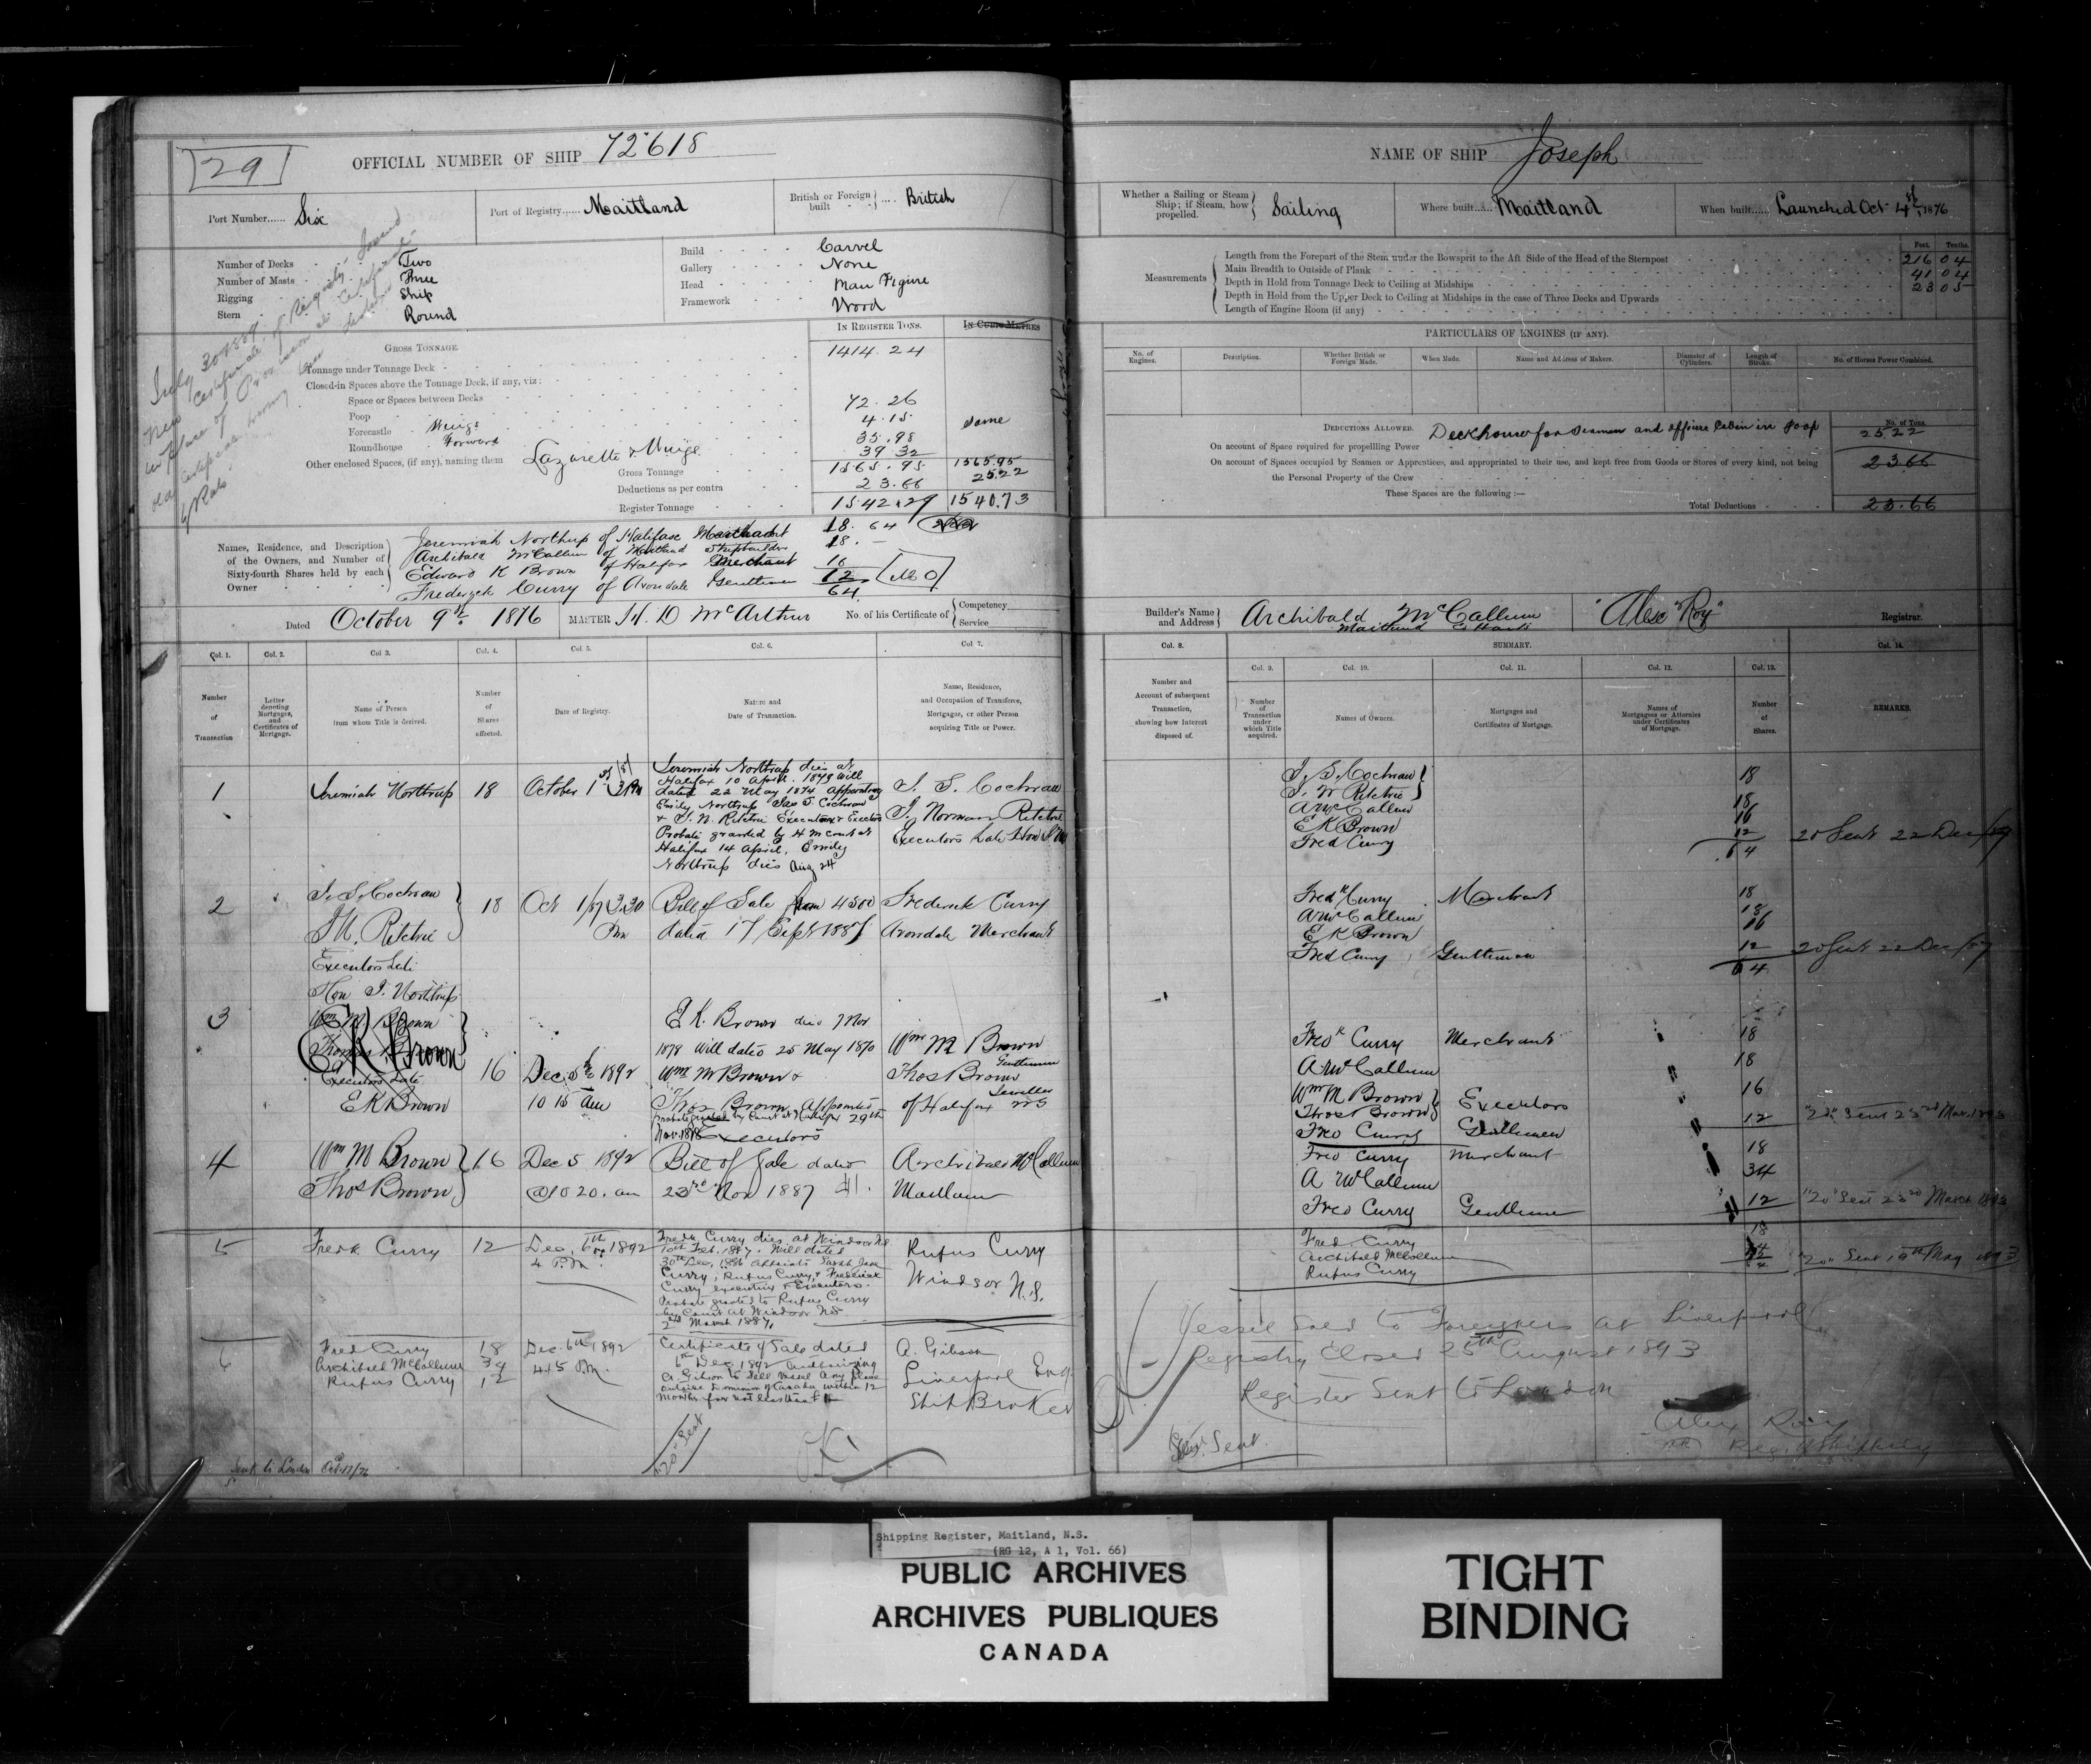 29
OFFICIAL NUMBER OF SHIP 72618
Port Number...... Six
Port of Registry...... Maitland
British or Foreign built .... British
Number of Decks Two
Number of Masts Three
Rigging Ship
Stern Round
Build Carvel
Gallery None
Head Man Figure
Framework Wood
July 30 1889
new certificate of Registry issued
in place of Provisional Certificate
old certificate having been destroyed
by Rats
IN REGISTER TONS.
IN CUBIC METRES
GROSS TONNAGE.
Tonnage under Tonnage Deck 1414.24
Closed-in Spaces above the Tonnage Deck, if any, viz:
Space or Spaces between Decks
Poop 72.26
Forecastle 4.15 same
Roundhouse Forward 35.98
Other enclosed Spaces, (if any), naming them Lazarette & 39.32
Gross Tonnage 1565.95 1565.95
Deductions as per contra 23.66 25.22
Register Tonnage 1542.29 1540.73
Names, Residence, and Description of the Owners, and Number of Sixty-fourth Shares held by each Owner
Jeremiah Northup of Halifax Merchant 18. 64
Archibald McCallum of Maitland Shipbuilder 18.
Edward K Brown of Halifax Merchant 16
Frederick Curry of Avondale Gentleman 12
64
Dated October 9th 1876
MASTER D McArthur
No. of his Certificate of Competency Service
Col. 1. Col. 2. Col. 3. Col. 4. Col. 5. Col. 6. Col. 7.
Number of Transaction
Letter denoting Mortgages, and Certificates of Mortgage.
Name of Person from whom Title is derived.
Number of Shares affected.
Date of Registry.
Nature and Date of Transaction.
Name, Residence, and Occupation of Transferee, Mortgagee, or other Person acquiring Title or Power.
1 Jeremiah Northup 18 October 1st 3 Pm
Jeremiah Northup dies at
Halifax 10 April. 1879 Will
dated 22 May 1874 Appointing
Emily Northup Jas S. Cochran
& J. N. Ritchie Executrix & Executors
Probate granted by H M court at
Halifax 14 April, Emily
Northup dies Aug 24
J. S. Cochran
J. Norman Ritchie
Executors Late Hon
2 J. S. Cochran
J N. Ritchie
Executors Late
Hon J. Northup
18 Oct 1/87 3.30 Pm
Bill of Sale from 4500
dated 17 Sept 1887
Frederick Curry
Avondale Merchant
3 Wm M Brown
Thomas Brown
Executors Late
E K Brown
EK Brown
16 Dec 5th 1892
10 15 am
E K. Brown died 7 Nov
1878 Will dated 25 May 1870
Wm M Brown &
Thos Brown Appointed
Probate granted by Court at Halifax 29th
Nov. 1878 Executors
Wm M Brown
Gentleman
Thos Brown
Jeweller
of Halifax NS
4 Wm M Brown
Thos Brown
16 Dec 5 1892
@10 20. am
Bill of Sale dated
23rd Nov 1887 $1.
Archibald McCallum
Maitland
5 Fredk Curry 12 Dec. 6th 1892
4 P.M.
Fredk Curry dies at Windsor NS
10th Feb. 1887. Will dated
30th Dec. 1886 appoints Sarah Jane
Curry, Rufus Curry, & Frederick
Curry, executrix & Executors.
Probate granted to Rufus Curry
by Court at Windsor NS
2nd March 1887.
Rufus Curry
Windsor N.S.
6 Fred Curry 18
Archibald McCallum 34
Rufus Curry 12
Dec. 6th 1892
4.15 P.m.
Certificate of Sale dated
6th Dec. 1892 authorizing
A. Gibson to sell vessel any place
outside Dominion of Canada within 12
months for not less than
A. Gibson
Liverpool Eng
Ship Broker
"20" Sent
OK
Sent to London Oct 17/76
NAME OF SHIP Joseph
Whether a Sailing or Steam Ship; if Steam, how propelled. Sailing
Where built...... Maitland
When built...... Launched Oct 4th, 1876
Feet. Tenths.
Measurements
Length from the Forepart of the Stem under the Bowsprit to the Aft Side of the Head of the Sternpost 216 04
Main Breadth to Outside of Plank 41 04
Depth in Hold from Tonnage Deck to Ceiling at Midships 23 05
Depth in Hold from the Upper Deck to Ceiling at Midships in the case of Three Decks and Upwards
Length of Engine Room (if any)
PARTICULARS OF ENGINES (IF ANY).
No. of Engines.
Description.
Whether British or Foreign Made.
When Made.
Name and Address of Makers.
Diameter of Cylinders.
Length of Stroke.
No. of Horses Power Combined.
No. of Tons.
DEDUCTIONS ALLOWED. Deckhouse for Seamen and officers Cabin in poop 25.22
On account of Space required for propelling Power
On account of Spaces occupied by Seamen or Apprentices, and appropriated to their use, and kept free from Goods or Stores of every kind, not being the Personal Property of the Crew 23.66
These Spaces are the following :—
Total Deductions 23.66
Builder's Name and Address Archibald McCallum
Maitland
"Alex Roy" Registrar.
Col. 8. SUMMARY. Col. 14.
Col. 9. Col. 10. Col. 11. Col. 12. Col. 13.
Number and Account of subsequent Transaction, showing how Interest disposed of.
Number of Transaction under which Title acquired.
Names of Owners.
Mortgages and Certificates of Mortgage.
Names of Mortgagees or Attornies under Certificates of Mortgage.
Number of Shares.
REMARKS.
J. S. Cochran
J. N Ritchie 18
A McCallum 18
E K Brown 16
Fred Curry 12
64
20 Sent 22 Dec/87
Fredk Curry Merchant 18
A McCallum 18
E K Brown 16
Fred Curry Gentleman 12
64
20 Sent 22 Dec/87
Fredk Curry Merchant 18
A McCallum 18
Wm M Brown
Thos Brown Executors 16
Fred Curry Gentleman 12
"20" Sent 23rd Mar. 1893
Fred Curry Merchant 18
A McCallum 34
Fred Curry Gentleman 12
"20" Sent 23rd March 1893
Fred. Curry 18
Archibald McCallum
Rufus Curry
"20" Sent 10th May 1893
Vessel Sold to Foreigners at Liverpool
Registry Closed 25th August 1893
Register Sent to London
Alex Roy
Reg. of Shipping
Sent.
Shipping Register, Maitland, N.S.
(RG 12, A 1, Vol. 66)
PUBLIC ARCHIVES
ARCHIVES PUBLIQUES
CANADA
TIGHT
BINDING